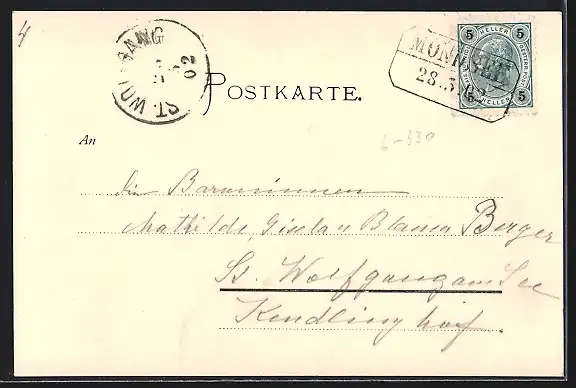 4
ST. WOLFGANG
02
MONDSEE
28.5.02
5 HELLER 5
5 HELLER 5
POSTKARTE.
6-330
An
die Baroninnen
Mathilde, Gisela u Blanca Berger
St. Wolfgang am See
Kendlinghof.